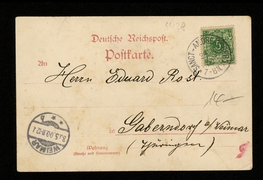 Deutsche Reichspost.
Postkarte.
An
Herrn Eduard Rost
in
Gaberndorf a/Weimar
(Thüringen)
Wohnung
(Straße und Hausnummer)
WEIMAR